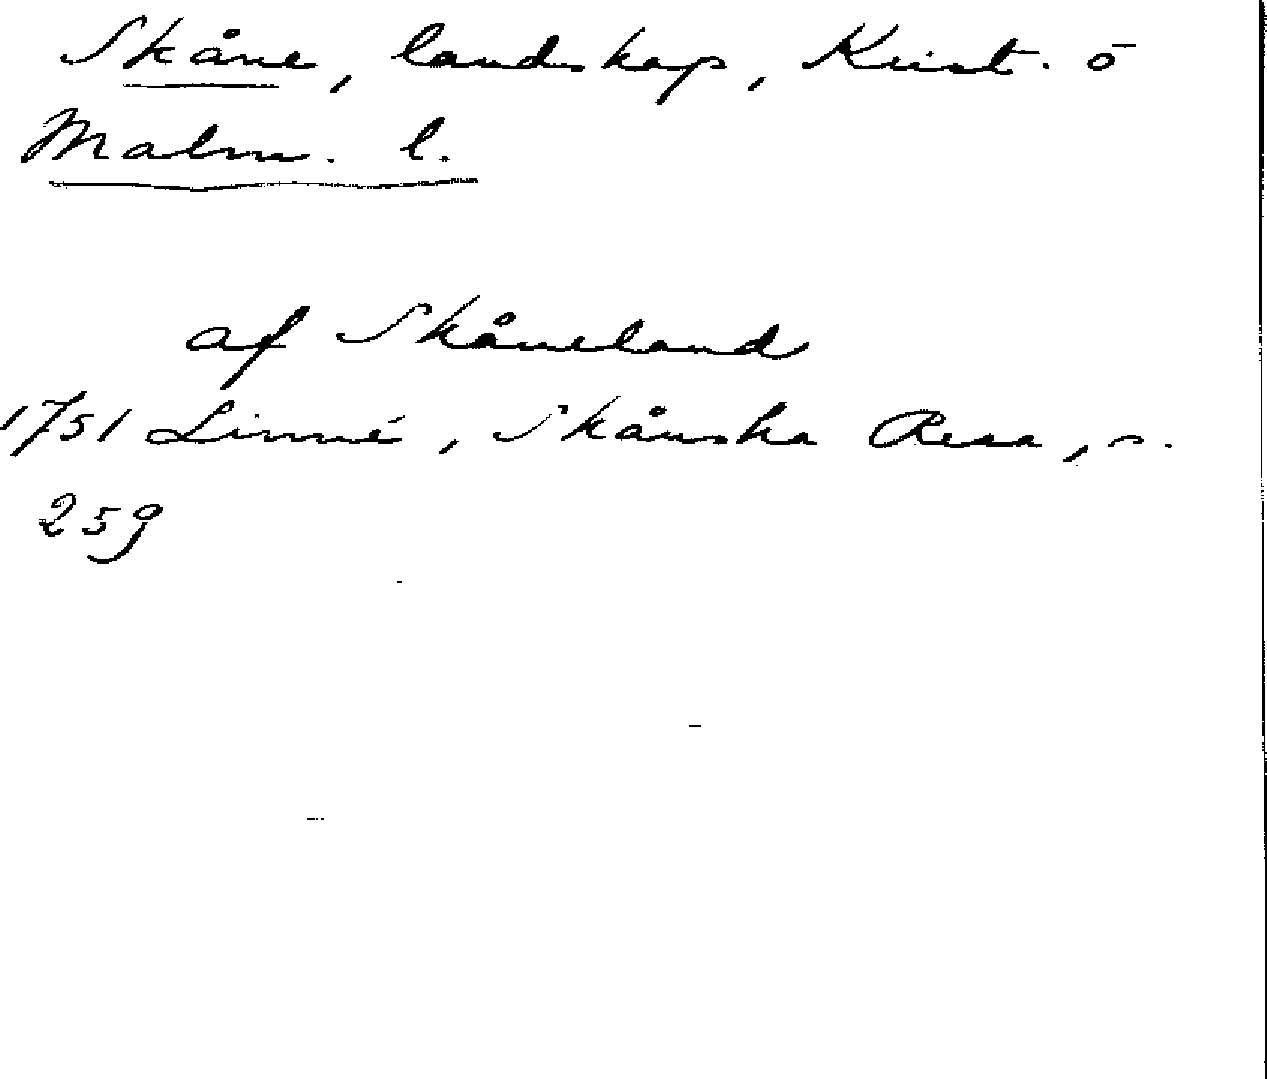 Skåne, landskap, Krist. o
Malm. l.
af Skåneland
1751 Linné, Skånska Resa, s.
259